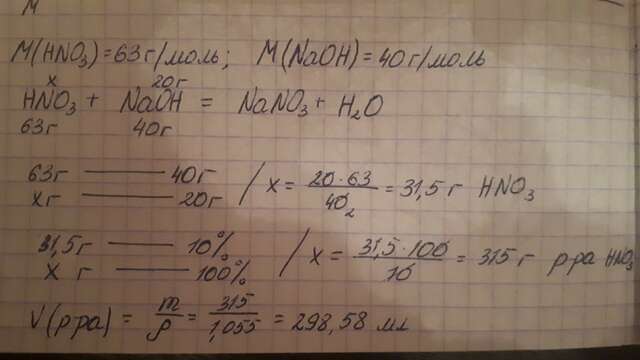 м
M(HNO₃) = 63 г/моль; M(NaOH) = 40 г/моль
x 20г
HNO₃ + NaOH = NaNO₃ + H₂O
63г 40г
63г —— 40г / x = 20·63/40₂ = 31,5 г HNO₃
xг —— 20г
31,5г —— 10% / x = 31,5·100/10 = 315 г р-ра HNO₃
x г —— 100%
V(р-ра) = m/ρ = 315/1,055 = 298,58 мл